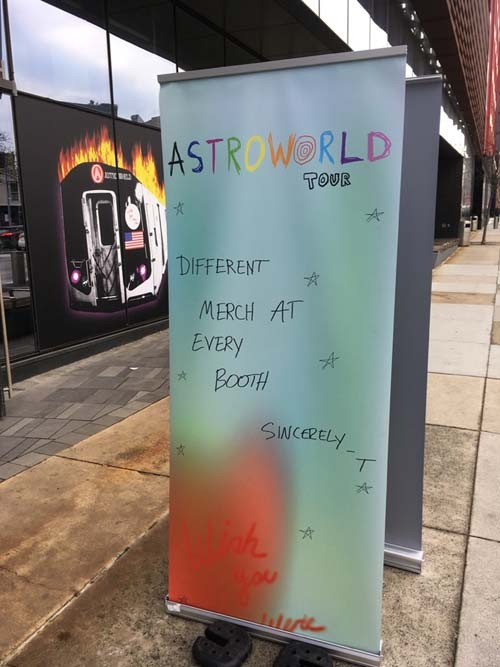 ASTROWORLD
TOUR
DIFFERENT
MERCH AT
EVERY
BOOTH
SINCERELY_
T
Wish
you
Were